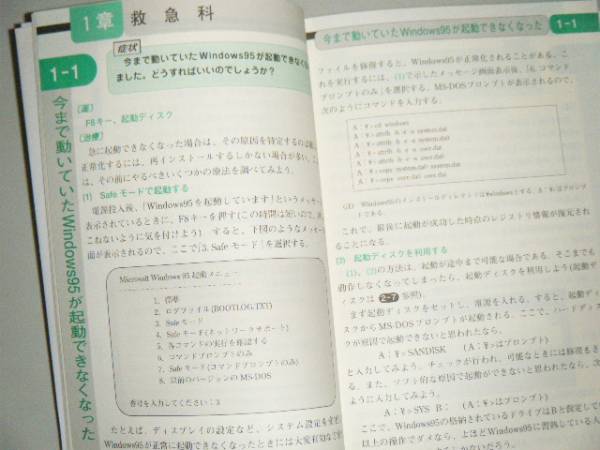 1章 救急科
1-1
今まで動いていたWindows95が起動できなくなった
症状
今まで動いていたWindows95が起動できなくな
ました。どうすればいいのでしょうか？
[薬]
F8キー、起動ディスク
[治療]
急に起動できなくなった場合は、その原因を特定するのは
正常化するには、再インストールするしかない場合が多い。こ
は、その前にやるべきいくつかの療法を試してみよう。
(1) Safeモードで起動する
電源投入後、「Windows95を起動しています」というメッセー
表示されているときに、F8キーを押す(この時間は短いので、
こねないように気を付けよう)。すると、下図のようなメッセー
面が表示されるので、ここで「3. Safeモード」を選択する。
Microsoft Windows 95 起動メニュー
1. 標準
2. ログファイル(BOOTLOG.TXT)
3. Safeモード
4. Safeモード(ネットワークサポート)
5. 各コマンドの実行を確認する
6. コマンドプロンプトのみ
7. Safeモード(コマンドプロンプトのみ)
8. 以前のバージョンのMS-DOS
番号を入力してください：3
たとえば、ディスプレイの設定など、システム設定を変更
Windows95が正常に起動できなくなったときには大変有効な
今まで動いていたWindows95が起動できなくなった
1-1
ファイルを修復すると、Windows95が正常化されることがある。こ
れを実行するには、(1)で示したメッセージ画面表示後、「6. コマンド
プロンプトのみ」を選択する。MS-DOSプロンプトが表示されるので、
次のようにコマンドを入力する。
A：¥>cd windows
A：¥>attrib -h -r -s system.dat
A：¥>attrib -h -r -s system.da0
A：¥>attrib -h -r -s user.dat
A：¥>attrib -h -r -s user.da0
A：¥>copy system.da0 system.dat
A：¥>copy user.da0 user.dat
Windows95のインストールディレクトリは¥windowsとする。A：¥>はプロンプ
トである。
これで、最後に起動が成功した時点のレジストリ情報が復元され
ることになる。
(3) 起動ディスクを利用する
(1)、(2)の方法は、起動が途中まで可能な場合である。そこまでも
動作しなくなってしまったら、起動ディスクを利用しよう(起動デ
ィスクは2-7参照)。
まず起動ディスクをセットし、電源を入れる。すると、起動ディ
スクからMS-DOSプロンプトが起動される。ここで、ハードディス
クが原因で起動できないと思われたなら、
A：¥>SCANDISK （A：¥>はプロンプト）
と入力してみよう。チェックが行われ、可能なときには修復もされ
る。また、ソフト的な原因で起動ができないと思われたなら、次
ように入力してみよう。
A：¥>SYS B： （A：¥>はプロンプト）
ここで、Windows95の格納されているドライブはBと仮定してい
以上の操作でダメなら、よほどWindows95に習熟している人